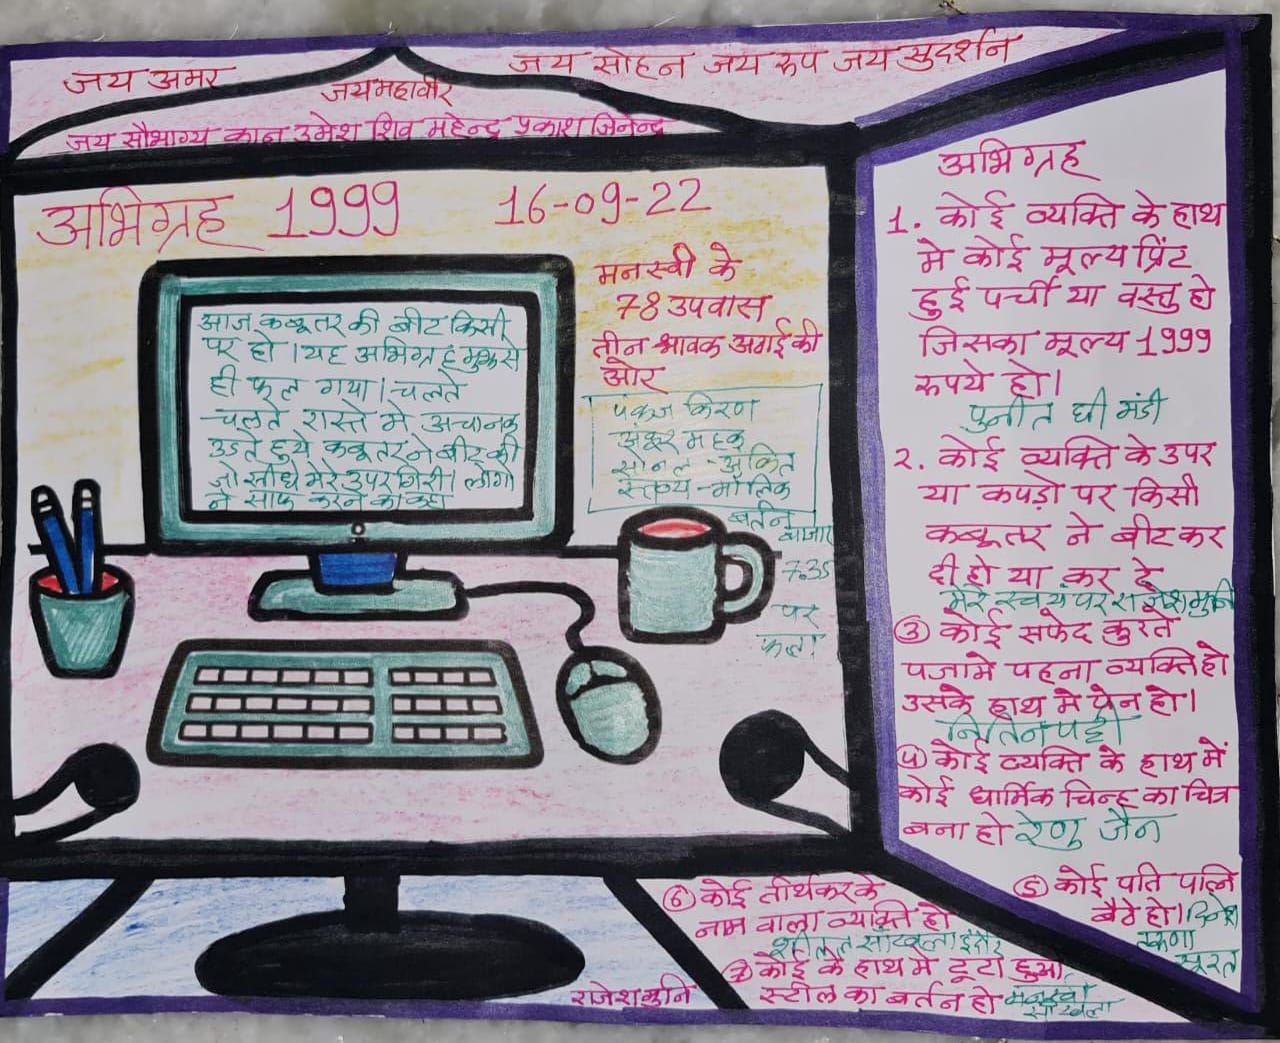 जय अमर
जय महावीर
जय सोहन जय रुप जय सुदर्शन
जय सौभाग्य कान उमेश शिव महेन्द्र प्रकाश जिनेन्द्र
अभिग्रह 1999 16-09-22
आज कबूतर की बीट किसी
पर हो। यह अभिग्रह मुझसे
ही फल गया। चलते
चलते रास्ते मे अचानक
उडते हुये कबूतर ने बीट की
जो सीधे मेरे उपर गिरी। लोगो
ने साफ करने का कहा
मनस्वी के
78 उपवास
तीन श्रावक अगाई की
ओर
पंकज किरण
अंकुर महक
सोनल अंकित
स्तव्य-मौलिक
बर्तन
बाजार
7.35
पर
फला
अभिग्रह
1. कोई व्यक्ति के हाथ
मे कोई मूल्य प्रिंट
हुई पर्ची या वस्तु हो
जिसका मूल्य 1999
रुपये हो।
पुनीत घी मंडी
२. कोई व्यक्ति के उपर
या कपड़ो पर किसी
कबूतर ने बीट कर
दी हो या कर दे
मेरे स्वयं पर राजेश मुनि
③ कोई सफेद कुरते
पजामे पहना व्यक्ति हो
उसके हाथ मे पेन हो।
नितिन पट्टी
④ कोई व्यक्ति के हाथ में
कोई धार्मिक चिन्ह का चित्र
बना हो रेणु जैन
⑤ कोई पति पत्नि
बैठे हो। दिनेश
सूरत
⑥ कोई तीर्थकर के
नाम वाला व्यक्ति हो
सांखला इंदौर
⑦ कोई के हाथ मे टूटा हुआ
स्टील का बर्तन हो मनस्वी
सांखला
राजेश मुनि